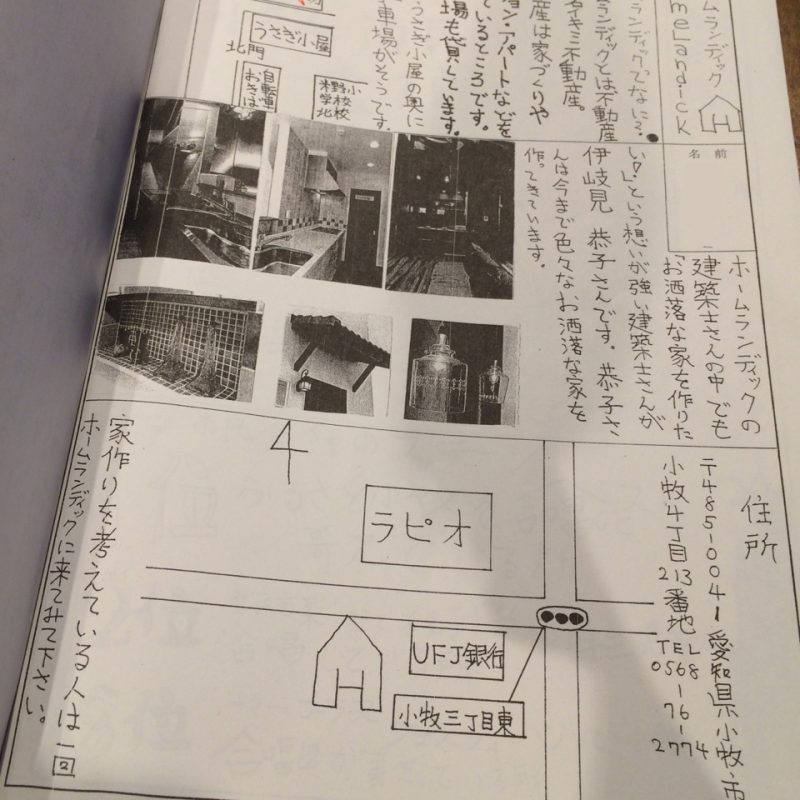 ムランディック
meLandick
ランディックってなに?
ランディックとは不動産
タキミ不動産。
産は家づくりや
ョン・アパートなどを
ているところです。
場も貸しています。
うさぎ小屋の奥に
車場がそうです。
うさぎ小屋
北門
自転車
おきば
米野小
学校
北校
名前
ホームランディックの
建築士さんの中でも
「お洒落な家を作りた
い!」という想いが強い建築士さんが
伊岐見 恭子さんです。恭子さ
んは今まで色々なお洒落な家を
作ってきています。
住所
〒485-0041 愛知県小牧市
小牧4丁目213番地 TEL 0568-76-2774
4
ラピオ
UFJ銀行
小牧三丁目東
家作りを考えている人は一回
ホームランディックに来てみて下さい。